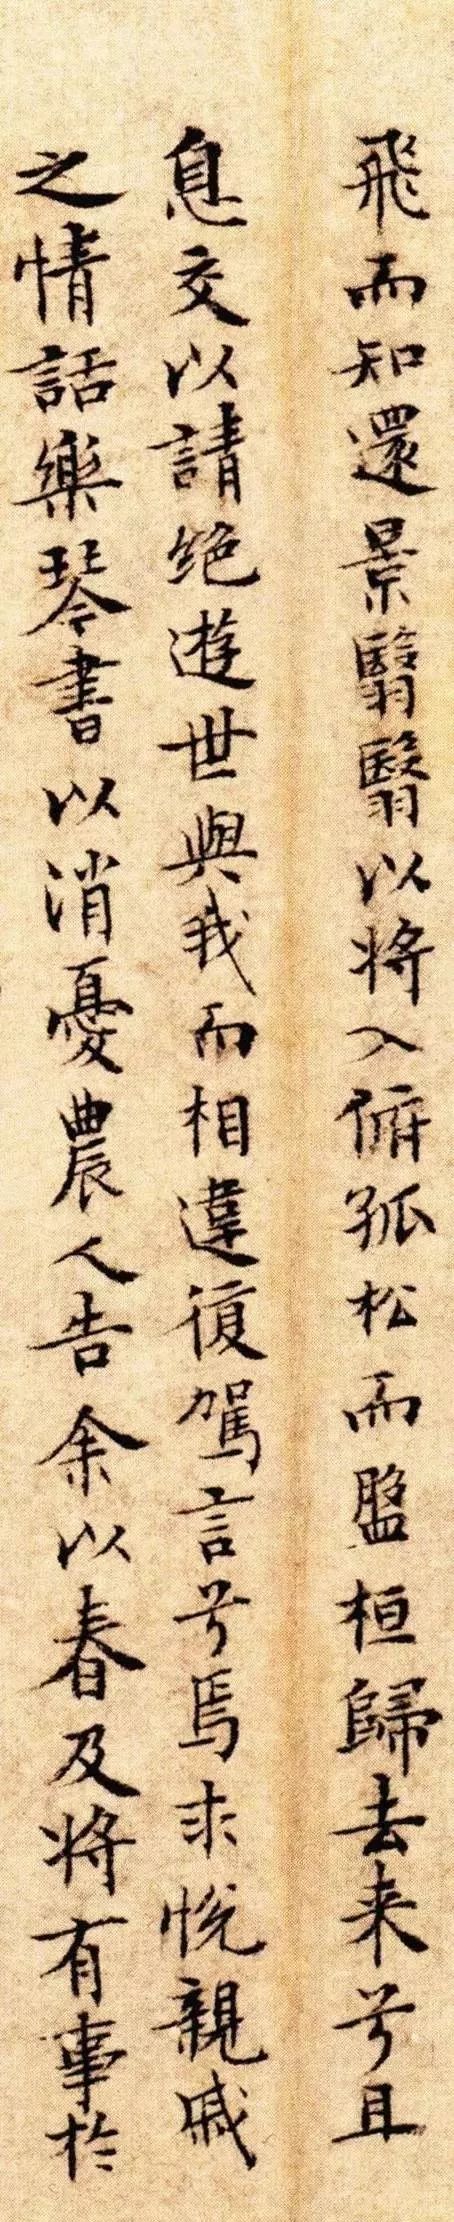 飛而知還景翳翳以将入俯孤松而盤桓歸去来兮且
息交以請絶遊世與我而相違復駕言兮焉求悅親戚
之情話樂琴書以消憂農人告余以春及将有事於